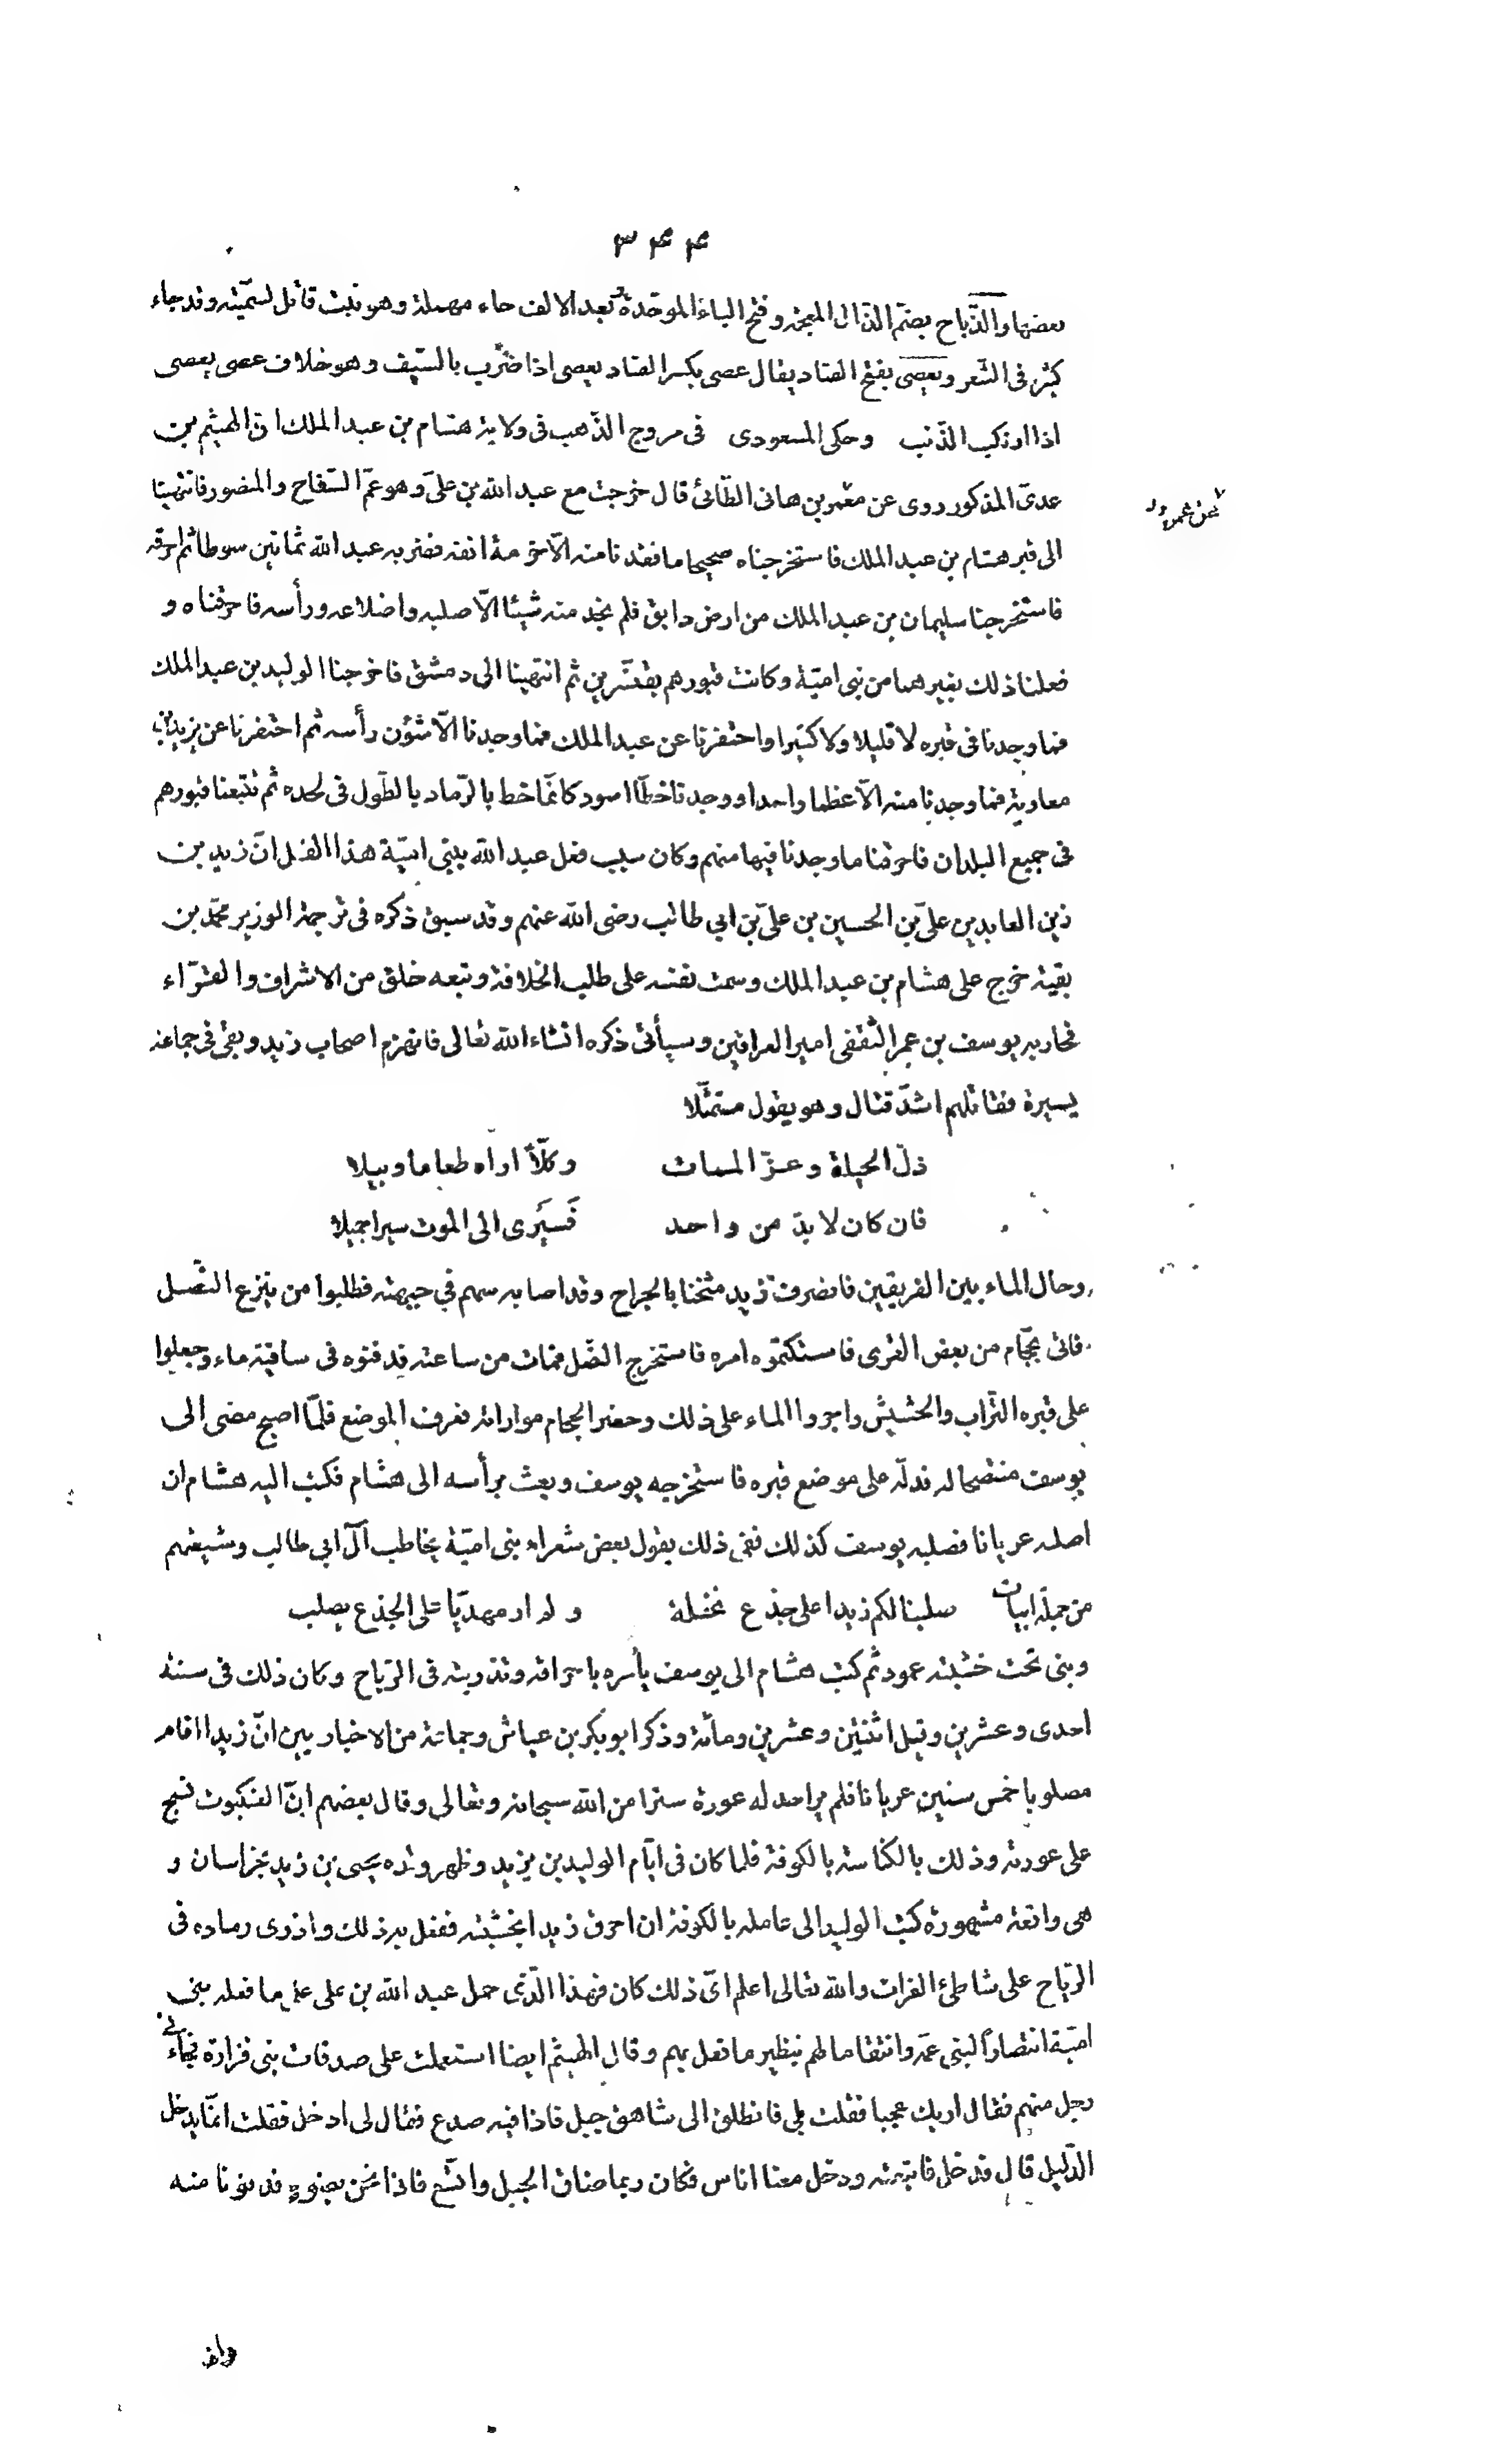 ٣۴۴
بعضها والذّباح بضمّ الذّال المعجمة وفتح الباء الموحّدة وبعد الالف حاء مهملة وهو نبت قاتل لسمّيته وقد جاء
كثير فى الشّعر ويعصى بفتح الصّاد يقال عصى بكسر الصّاد يعصى اذا ضرب بالسّيف وهو خلاف عصى يعصى
اذا ارتكب الذّنب وحكى المسعودى فى مروج الذّهب فى ولاية هشام بن عبد الملك انّ الهيثم بن
عدىّ المذكور روى عن معمّر بن هانى الطّائىّ قال خرجت مع عبد الله بن علىّ وهو عمّ السّفّاح والمنصور فانتهينا
الى قبر هشام بن عبد الملك فاستخرجناه صحيحا ما فقدنا منه الّا خرمة انفه فضربه عبد الله ثمانين سوطا ثم احرقه
فاستخرجنا سليمان بن عبد الملك من ارض دابق فلم نجد منه شيئا الّا صلبه واضلاعه ورأسه فاحرقناه و
فعلنا ذلك بغيرهما من بنى اميّة وكانت قبورهم بقنّسرين ثم انتهينا الى دمشق فاخرجنا الوليد بن عبد الملك
فما وجدنا فى قبره لا قليلا ولا كثيرا واحتفرنا عن عبد الملك فما وجدنا الّا شئون رأسه ثم احتفرنا عن يزيد بن
معاوية فما وجدنا منه الّا عظما واحدا ووجدنا خطّا اسود كانّما خط بالرّماد بالطّول فى لحده ثم تتبّعنا قبورهم
فى جميع البلدان فاحرقنا ما وجدنا فيها منهم وكان سبب فعل عبد الله ببنى اميّة هذا الفعل انّ زيد بن
زين العابدين علىّ بن الحسين بن علىّ بن ابي طالب رضى الله عنهم وقد سبق ذكره فى ترجمة الوزير محمّد بن
بقيّة خرج على هشام بن عبد الملك وسمت نفسه على طلب الخلافة وتبعه خلق من الاشراف والقرّاء
فحاربه يوسف بن عمر الثّقفى امير العراقين وسيأتى ذكره انشاء الله تعالى فانهزم اصحاب زيد وبقى فى جماعة
يسيرة فقاتلهم اشدّ قتال وهو يقول متمثّلا
ذلّ الحياة وعزّ الممات وكلّا اراه طعاما وبيلا
فان كان لا بدّ من واحد فَسِيَرى الى الموت سيرا جميلا
وحال الماء بين الفريقين فانصرف زيد مثخنا بالجراح وقد اصابه سهم فى جبهته فطلبوا من ينزع النّصل
فاتى بحجّام من بعض القرى فاستكتموه امره فاستخرج النّصل فمات من ساعته فدفنوه فى ساقية ماء وجعلوا
على قبره التّراب والحشيش واجروا الماء على ذلك وحضر الحجام مواراته فعرف الموضع فلمّا اصبح مضى الى
يوسف متنصّحا له فدلّه على موضع قبره فاستخرجه يوسف وبعث برأسه الى هشام فكتب اليه هشام ان
اصلبه عريانا فصلبه يوسف كذلك ففى ذلك يقول بعض شعراء بنى اميّة يخاطب آل ابي طالب وشيعتهم
من جملة ابيات صلبنا لكم زيدا على جذع نخلة ولم ار مهديّا على الجذع يصلب
وبنى تحت خشبته عمود ثم كتب هشام الى يوسف يأمره باحراقه وتذريته فى الرّياح وكان ذلك فى سنة
احدى وعشرين وقيل اثنتين وعشرين ومائة وذكر ابو بكر بن عياش وجماعة من الاخباريين انّ زيدا اقام
مصلوبا خمس سنين عريانا فلم ير احد له عورة سترا من الله سبحانه وتعالى وقال بعضهم انّ العنكبوت نسج
على عورته وذلك بالكناسة بالكوفة فلما كان فى ايّام الوليد بن يزيد وظهر ولده يحيى بن زيد بخراسان و
هى واقعة مشهورة كتب الوليد الى عامله بالكوفة ان احرق زيدا بخشبته ففعل به ذلك واذرى رماده فى
الرّياح على شاطئ الفرات والله تعالى اعلم اىّ ذلك كان فهذا الّذى حمل عبد الله بن على على ما فعله ببنى
اميّة انتصاراً لبنى عمّه وانتقاما لهم بنظير ما فعل بهم وقال الهيثم ايضا استعملت على صدقات بنى فزارة فجاءنى
رجل منهم فقال اريك عجبا فقلت بلى فانطلق الى شاهق جبل فاذا فيه صدع فقال لى ادخل فقلت انّما يدخل
الدّليل قال فدخل فاتبعته ودخل معنا اناس فكان ربما ضاق الجبل واتّسع فاذا نحن بضوء فدنونا منه